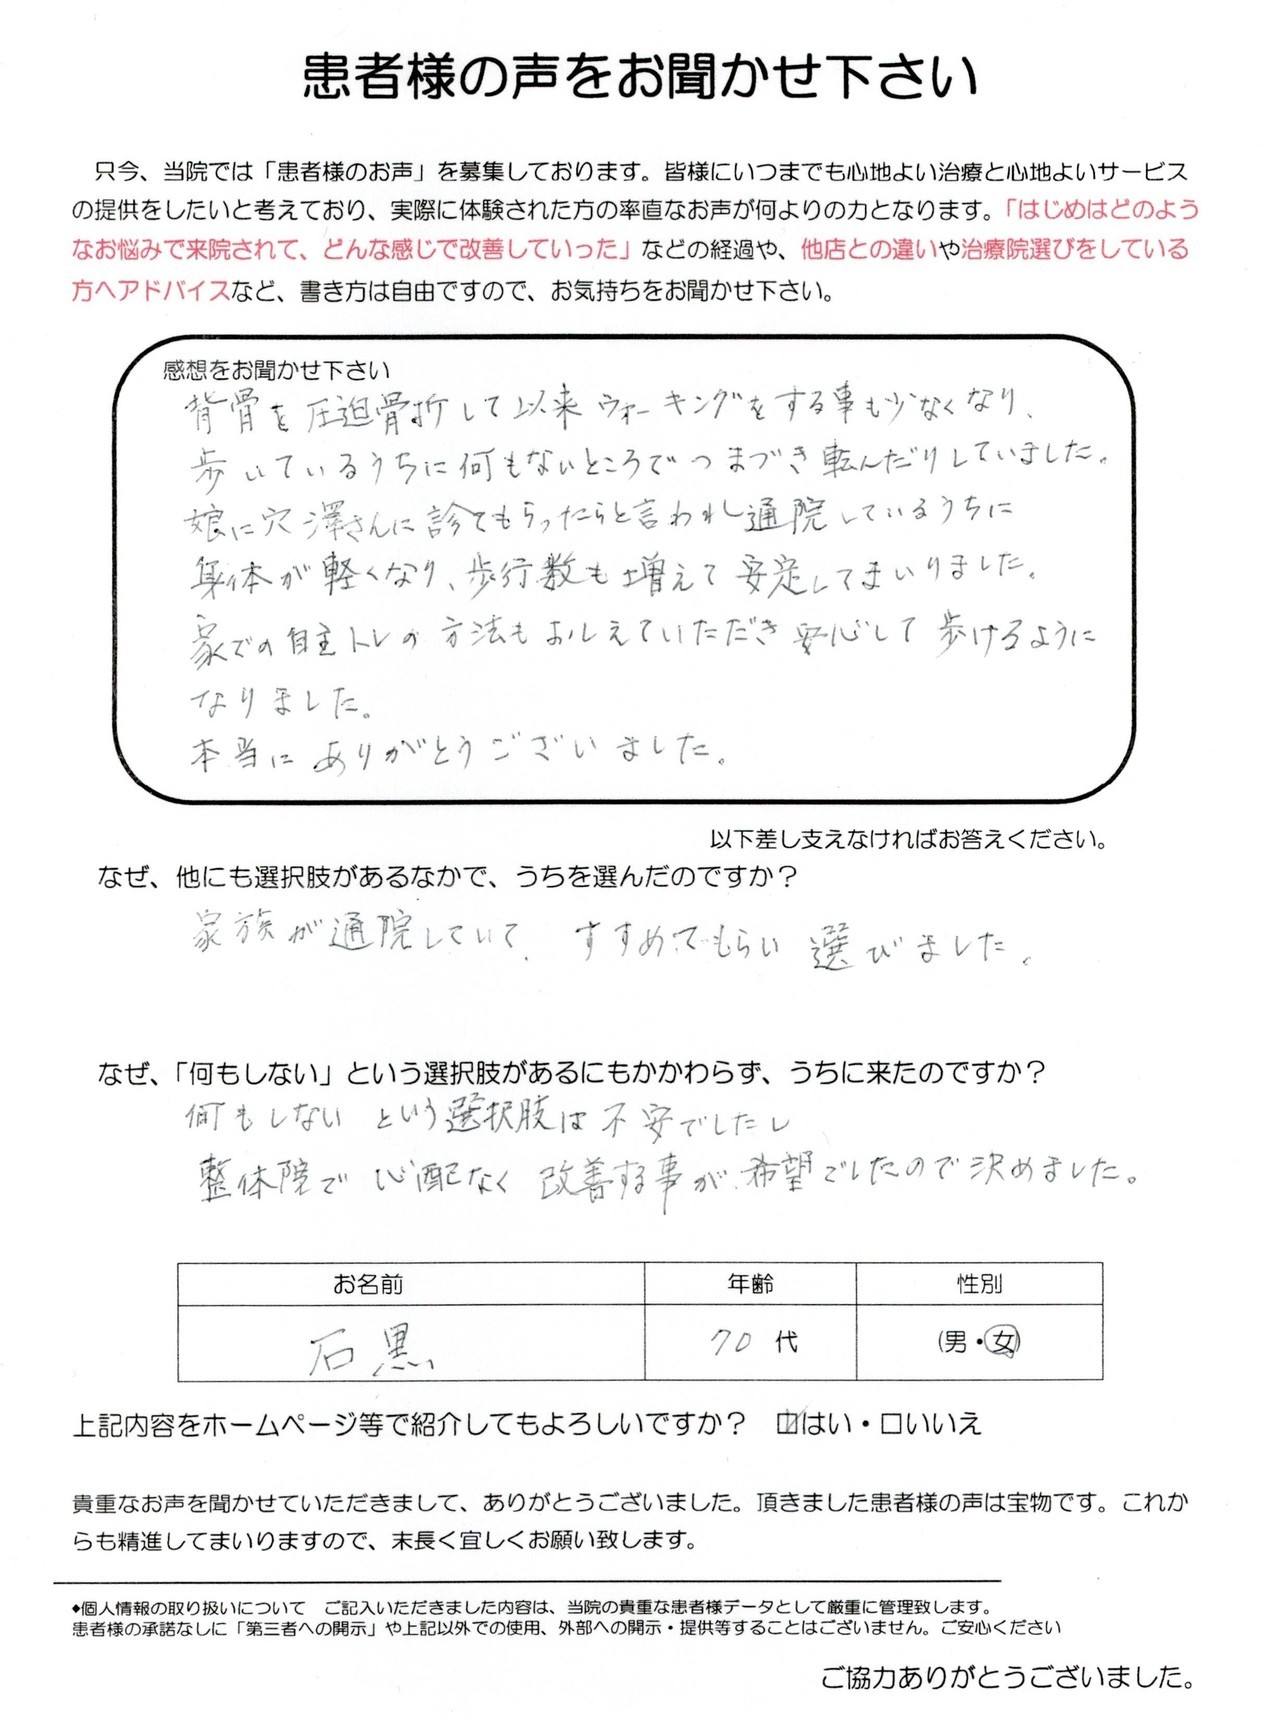 患者様の声をお聞かせ下さい
只今、当院では「患者様のお声」を募集しております。皆様にいつまでも心地よい治療と心地よいサービス
の提供をしたいと考えており、実際に体験された方の率直なお声が何よりの力となります。「はじめはどのよう
なお悩みで来院されて、どんな感じで改善していった」などの経過や、他店との違いや治療院選びをしている
方へアドバイスなど、書き方は自由ですので、お気持ちをお聞かせ下さい。
感想をお聞かせ下さい
背骨を圧迫骨折して以来ウォーキングをする事も少なくなり、
歩いているうちに何もないところでつまづき転んだりしていました。
娘に穴澤さんに診てもらったらと言われ通院しているうちに
身体が軽くなり、歩行数も増えて安定してまいりました。
家での自主トレの方法もおしえていただき安心して歩けるように
なりました。
本当にありがとうございました。
以下差し支えなければお答えください。
なぜ、他にも選択肢があるなかで、うちを選んだのですか？
家族が通院していて、すすめてもらい選びました。
なぜ、「何もしない」という選択肢があるにもかかわらず、うちに来たのですか？
何もしないという選択肢は不安でしたし
整体院で心配なく改善する事が希望でしたので決めました。
お名前 年齢 性別
石黒 70代 (男・女)
上記内容をホームページ等で紹介してもよろしいですか？ ☑はい・□いいえ
貴重なお声を聞かせていただきまして、ありがとうございました。頂きました患者様の声は宝物です。これか
らも精進してまいりますので、末長く宜しくお願い致します。
◆個人情報の取り扱いについて ご記入いただきました内容は、当院の貴重な患者様データとして厳重に管理致します。
患者様の承諾なしに「第三者への開示」や上記以外での使用、外部への開示・提供等することはございません。ご安心ください
ご協力ありがとうございました。